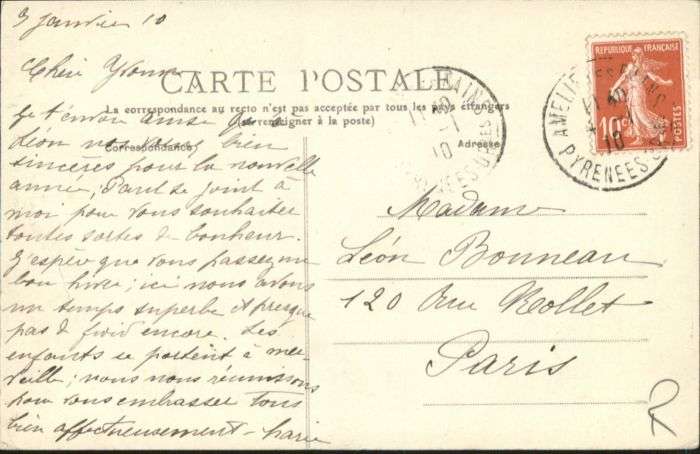 3 Janvier 10
Chère Yvonne
CARTE POSTALE
La correspondance au recto n'est pas acceptée par tous les pays étrangers
(se renseigner à la poste)
Correspondance
Adresse
Je t'envoie ainsi que
Léon vœux bien
sincères pour la nouvelle
année, Paul se joint à
moi pour vous souhaiter
toutes sortes de bonheur.
J'espère que vous passez un
bon hiver; ici nous avons
un temps superbe et presque
pas de froid encore. Les
enfants se portent à mer-
veille; nous nous réunissons
pour vous embrasser tous
bien affectueusement - Marie
REPUBLIQUE FRANÇAISE
10
POSTES
AMELIE-LES-BAINS
10
PYRENEES
Madame
Léon Bonneau
120 Rue Nollet
Paris